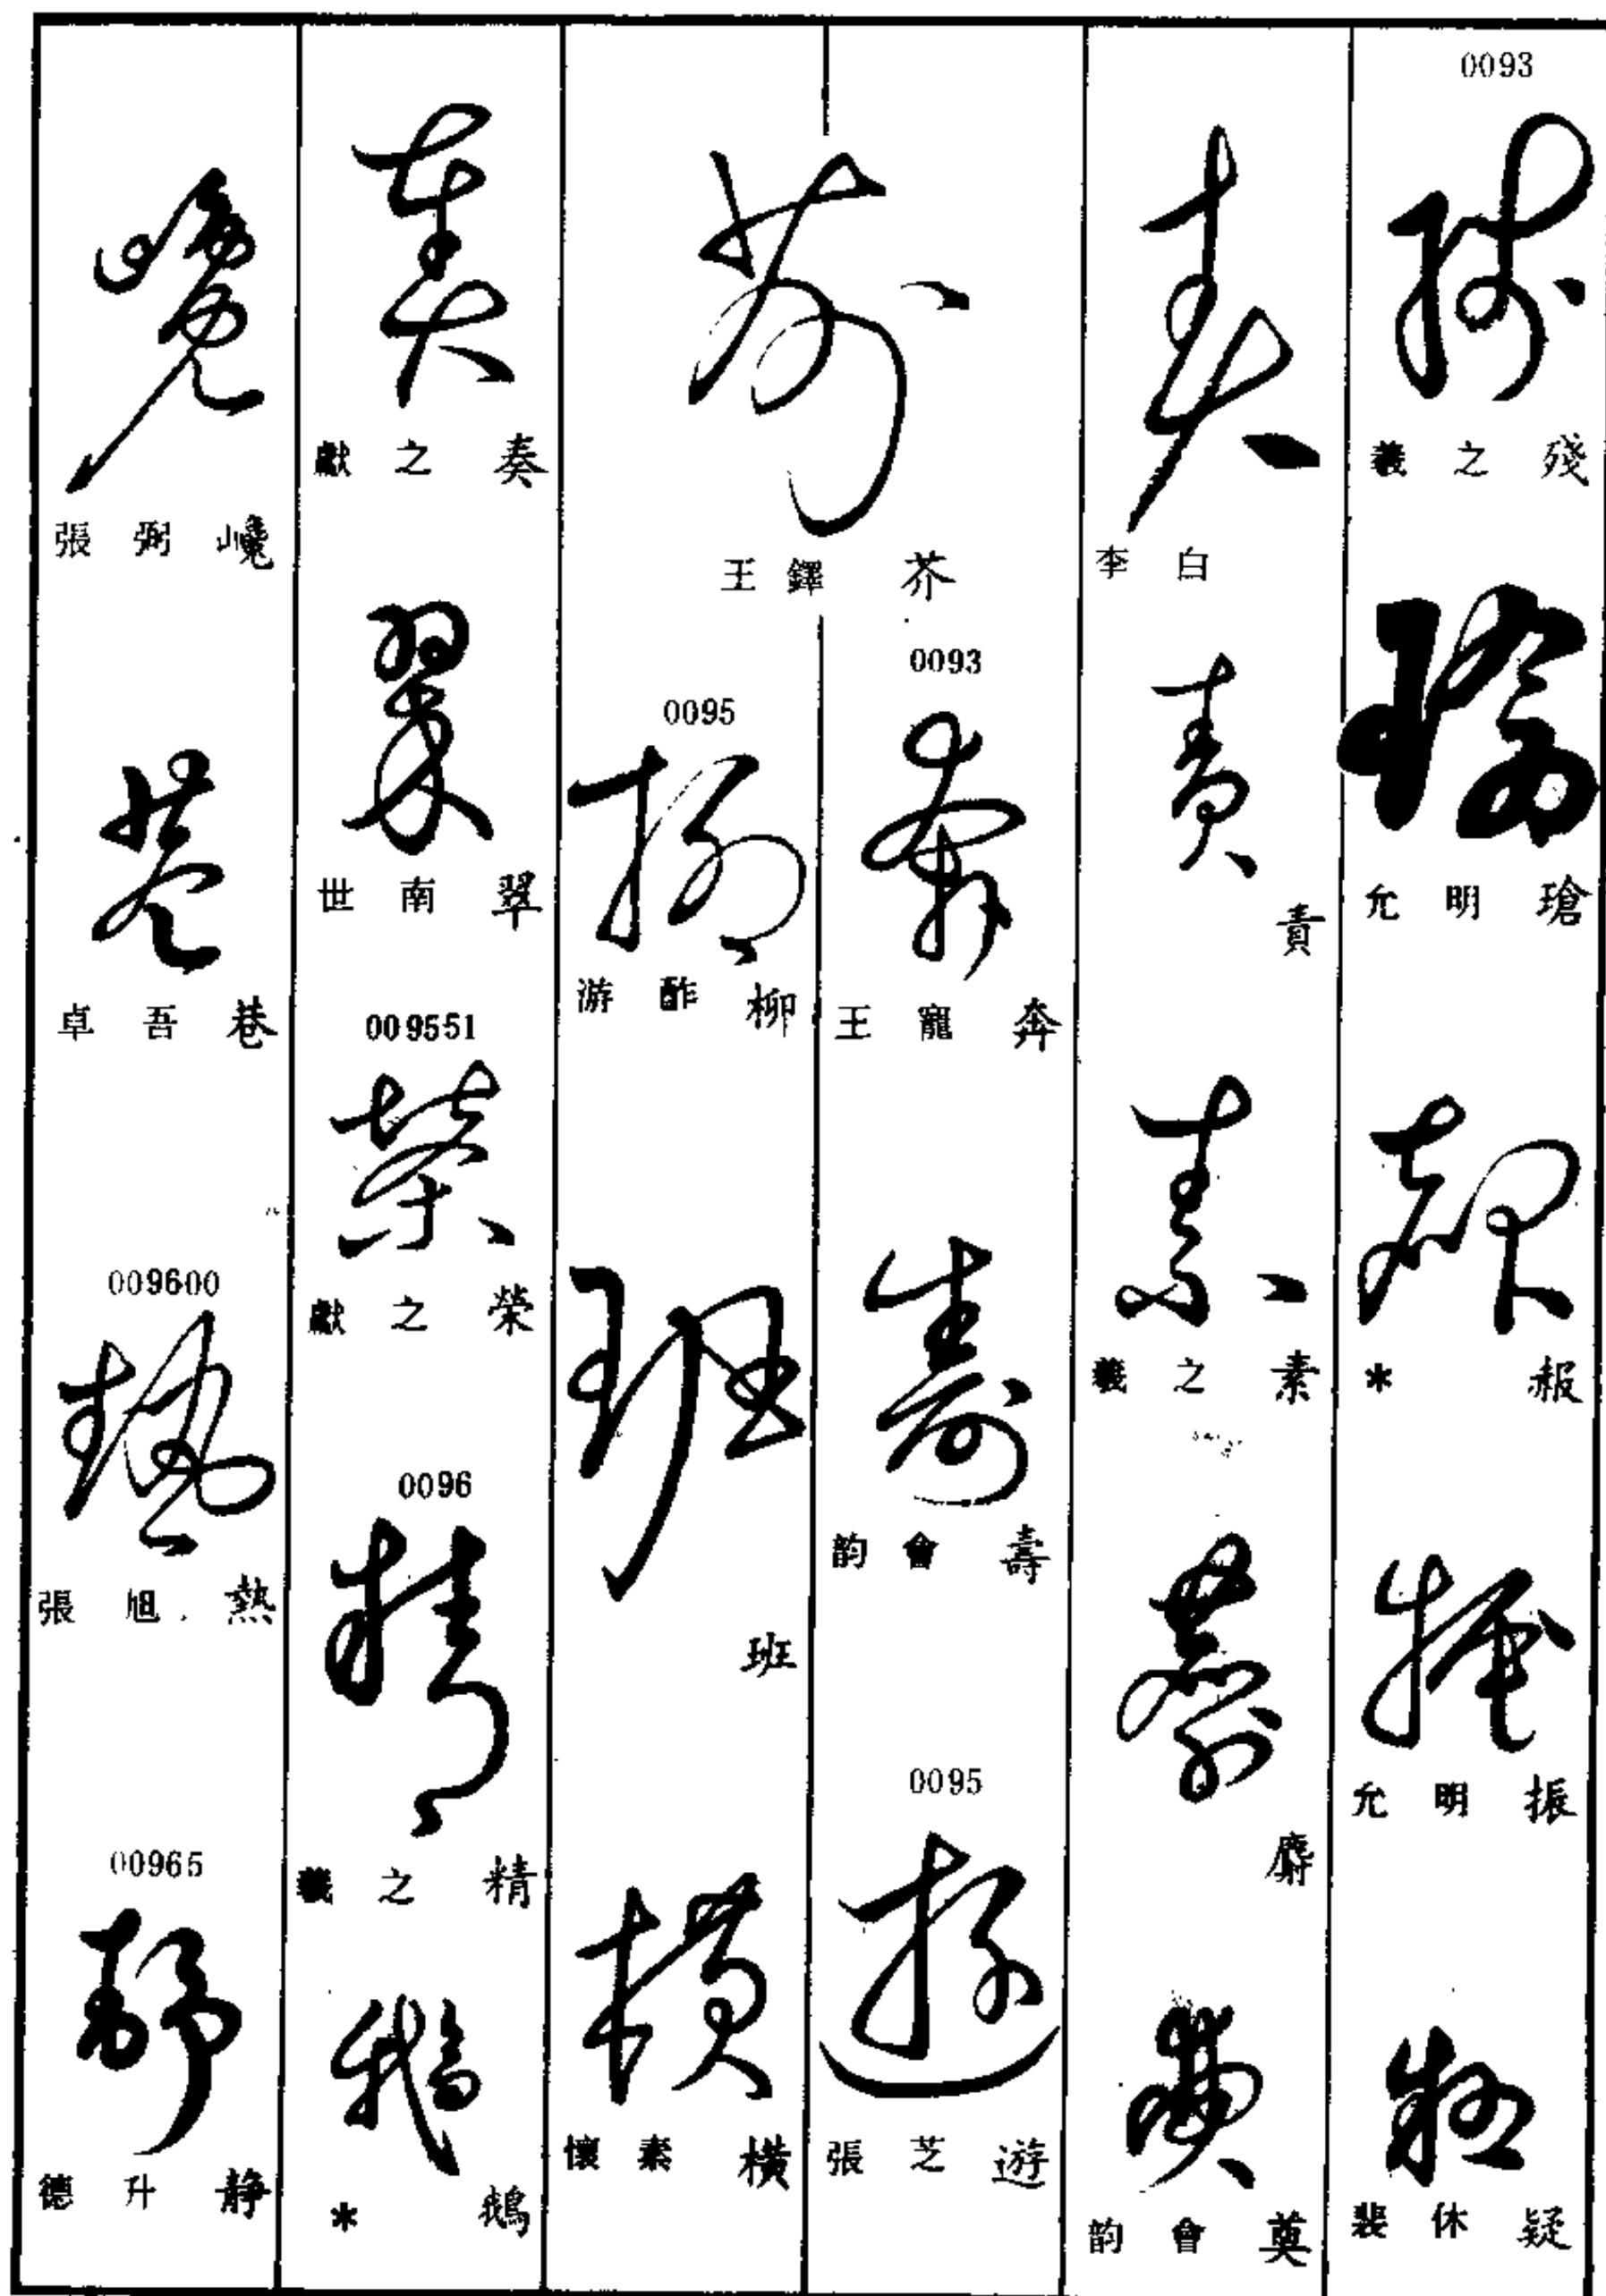 0093
羲之 殘
允明 瑲
* 赧
允明 振
裴休 疑
李白
責
羲之 素
麝
韵會 奠
王鐸 芥
0093
王寵 奔
韵會 壽
0095
張芝 遊
0095
游酢 柳
班
懷素 橫
獻之 奏
世南 翠
009551
獻之 榮
0096
羲之 精
* 鵝
張弼 巉
卓吾 巷
009600
張旭 熱
00965
德升 静